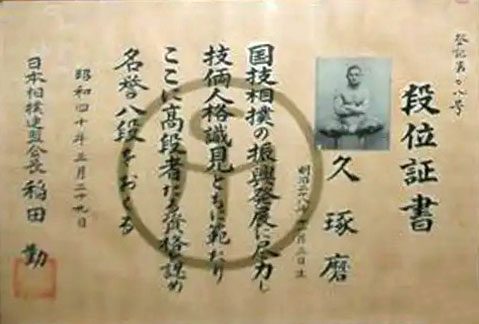 段位証書
登記第か八号
久琢磨
明治二八年十一月三日生
国技相撲の振興発展に尽力し
技倆人格識見ともに範たり
ここに高段者たる資格を認め
名誉八段をおくる
昭和四十年三月二十九日
日本相撲連盟会長 稲田 勤